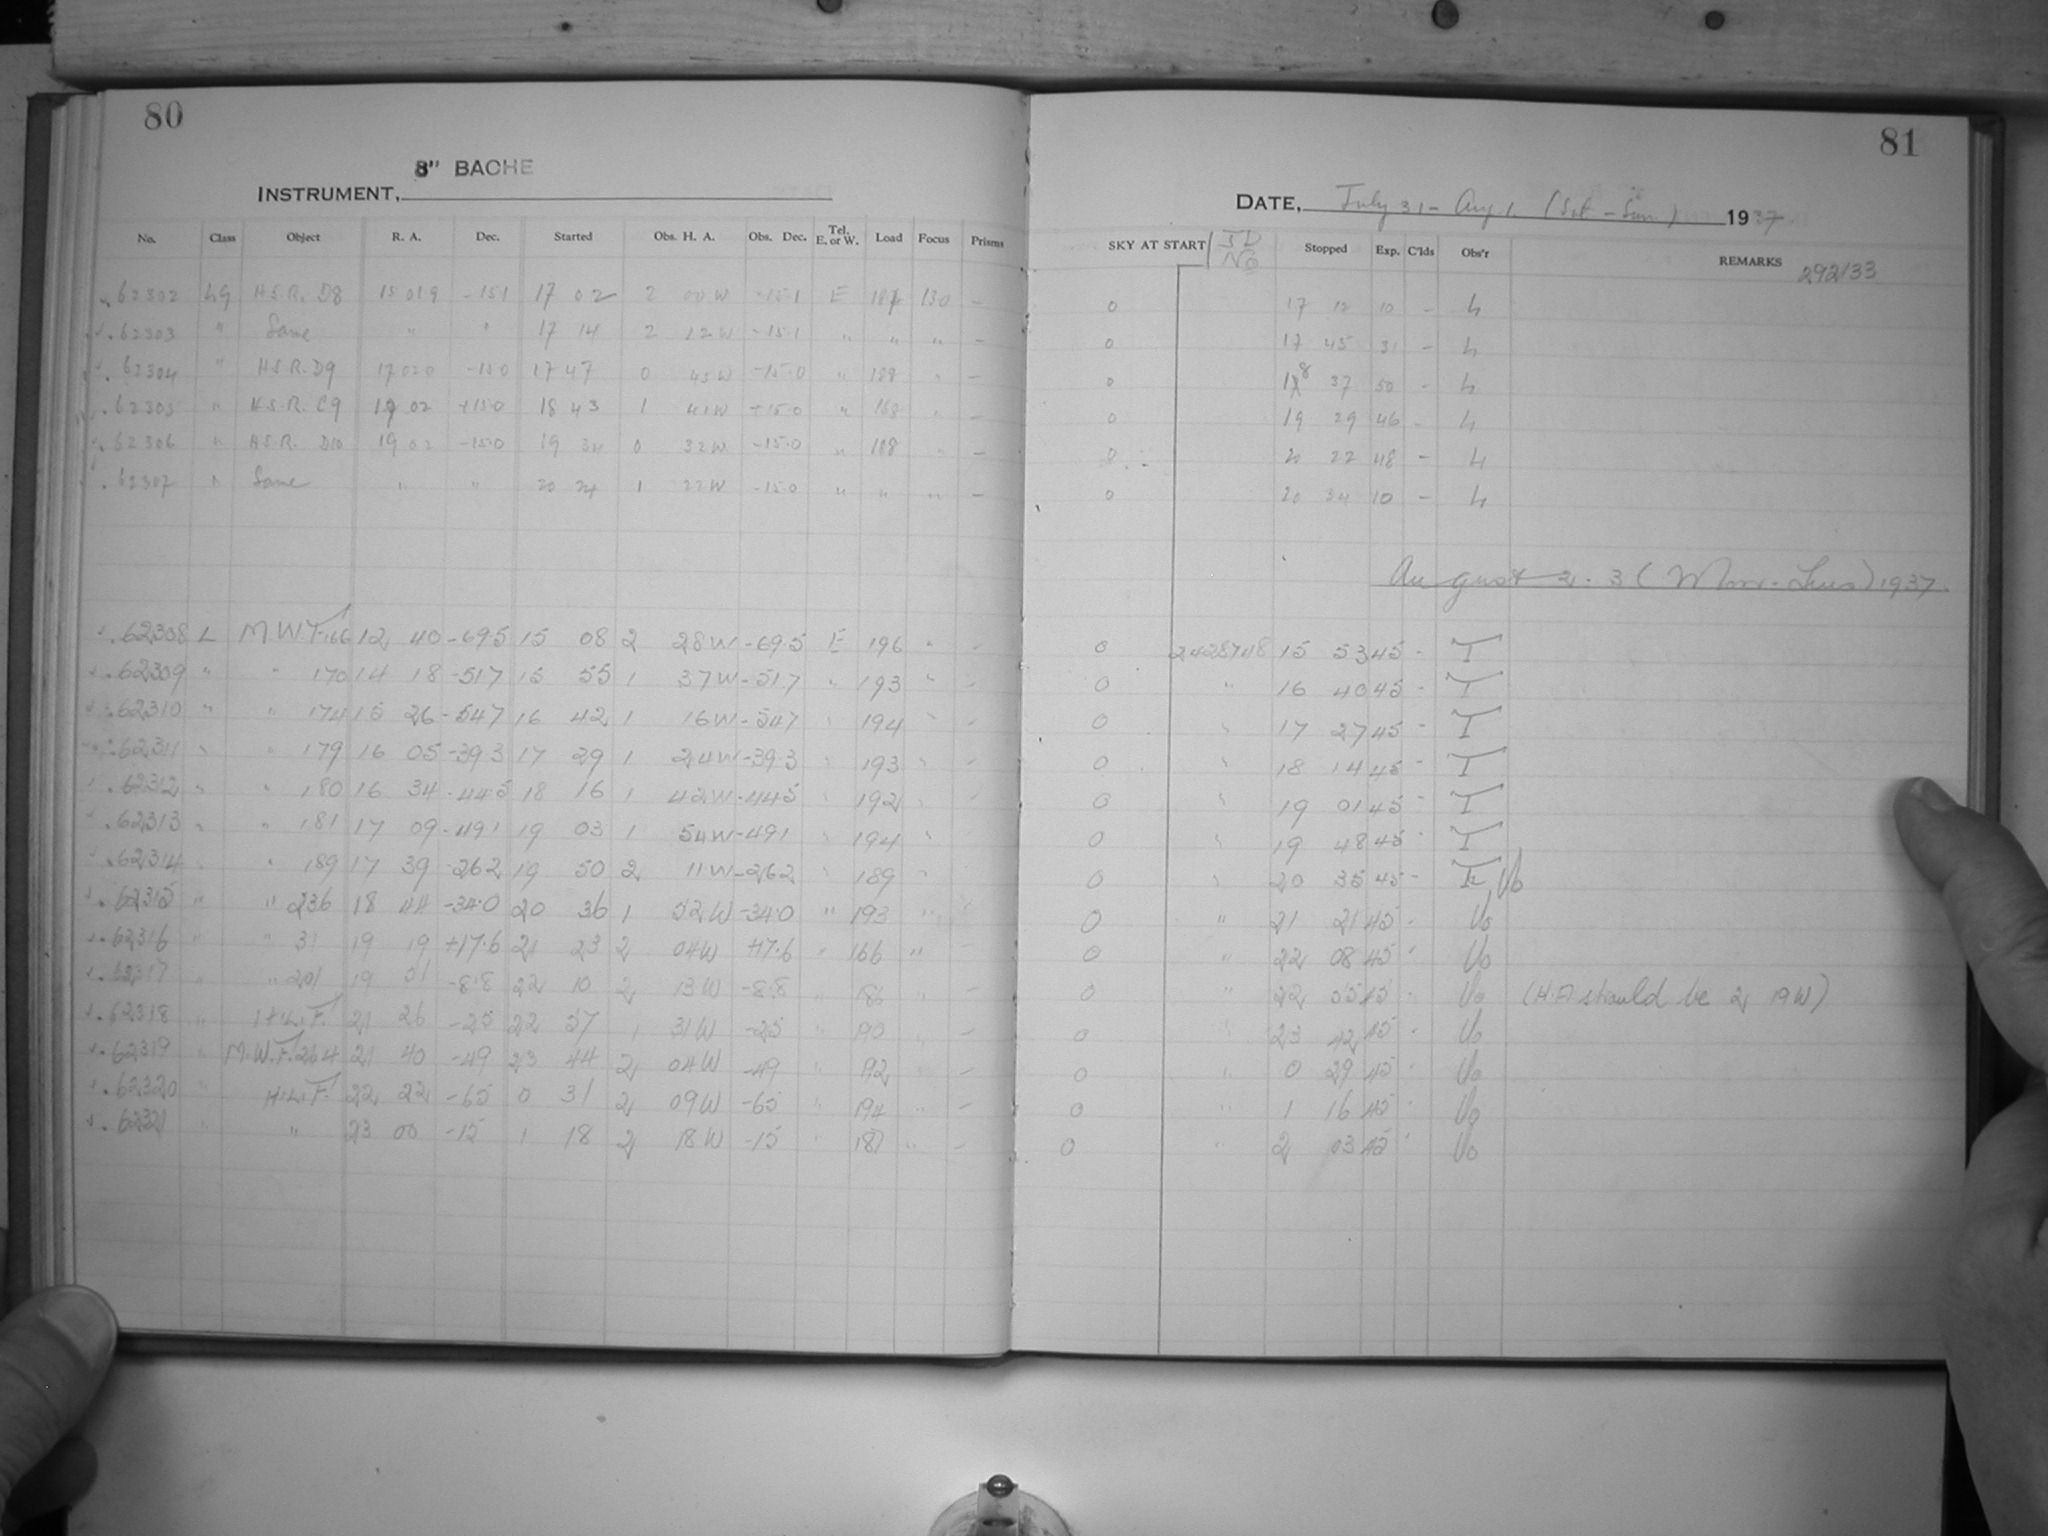 80
8" BACHE
INSTRUMENT,
No. Class Object R. A. Dec. Started Obs. H. A. Obs. Dec. Tel. E. or W. Load Focus Prisms
62302 Lg H.S.R. D8 15 01.9 -15.1 17 02 2 00 W -15.1 E 187 130 -
62303 " Same " " 17 14 2 12 W -15.1 " " " -
62304 " H.S.R. D9 17 02.0 -15.0 17 47 0 45 W -15.0 " 188 " -
62305 " H.S.R. C9 17 02 +15.0 18 43 1 41 W +15.0 " 168 " -
62306 " H.S.R. D10 19 02 -15.0 19 34 0 32 W -15.0 " 188 " -
62307 " Same " " 20 24 1 22 W -15.0 " " " -
62308 L M.W.F. 166 12 40 -69.5 15 08 2 28 W -69.5 E 196 " -
62309 " " 170 14 18 -51.7 15 55 1 37 W -51.7 " 193 " -
62310 " " 174 15 26 -54.7 16 42 1 16 W -54.7 " 194 " -
62311 " " 179 16 05 -39.3 17 29 1 24 W -39.3 " 193 " -
62312 " " 180 16 34 -44.5 18 16 1 42 W -44.5 " 192 " -
62313 " " 181 17 09 -49.1 19 03 1 54 W -49.1 " 194 " -
62314 " " 189 17 39 -26.2 19 50 2 11 W -26.2 " 189 " -
62315 " " 236 18 44 -34.0 20 36 1 52 W -34.0 " 193 " -
62316 " " 31 19 19 +17.6 21 23 2 04 W +17.6 " 166 " -
62317 " " 201 19 51 -8.8 22 10 2 13 W -8.8 " 186 " -
62318 " H.L.F. 21 26 -25 22 57 1 31 W -25 " 190 " -
62319 " M.W.F. 264 21 40 -49 23 44 2 04 W -49 " 192 " -
62320 " H.L.F. 22 22 -65 0 31 2 09 W -65 " 194 " -
62321 " " 23 00 -15 1 18 2 18 W -15 " 187 " -
81
DATE, July 31 - Aug 1. (Sat - Sun) 1937
SKY AT START JD No Stopped Exp. C'lds Obs'r REMARKS 292133
0 17 12 10 - h
0 17 45 31 - h
0 18 37 50 - h
0 19 29 46 - h
0 20 22 48 - h
0 20 34 10 - h
August 2. 3 (Mon. - Tues) 1937.
0 2428748 15 53 45 - T
0 " 16 40 45 - T
0 " 17 27 45 - T
0 " 18 14 45 - T
0 " 19 01 45 - T
0 " 19 48 45 - T
0 " 20 35 45 - Vo
0 " 21 21 45 - Vo
0 " 22 08 45 - Vo
0 " 22 55 45 - Vo (H.A. should be 2 19W)
0 " 23 42 45 - Vo
0 " 0 29 45 - Vo
0 " 1 16 45 - Vo
0 " 2 03 45 - Vo